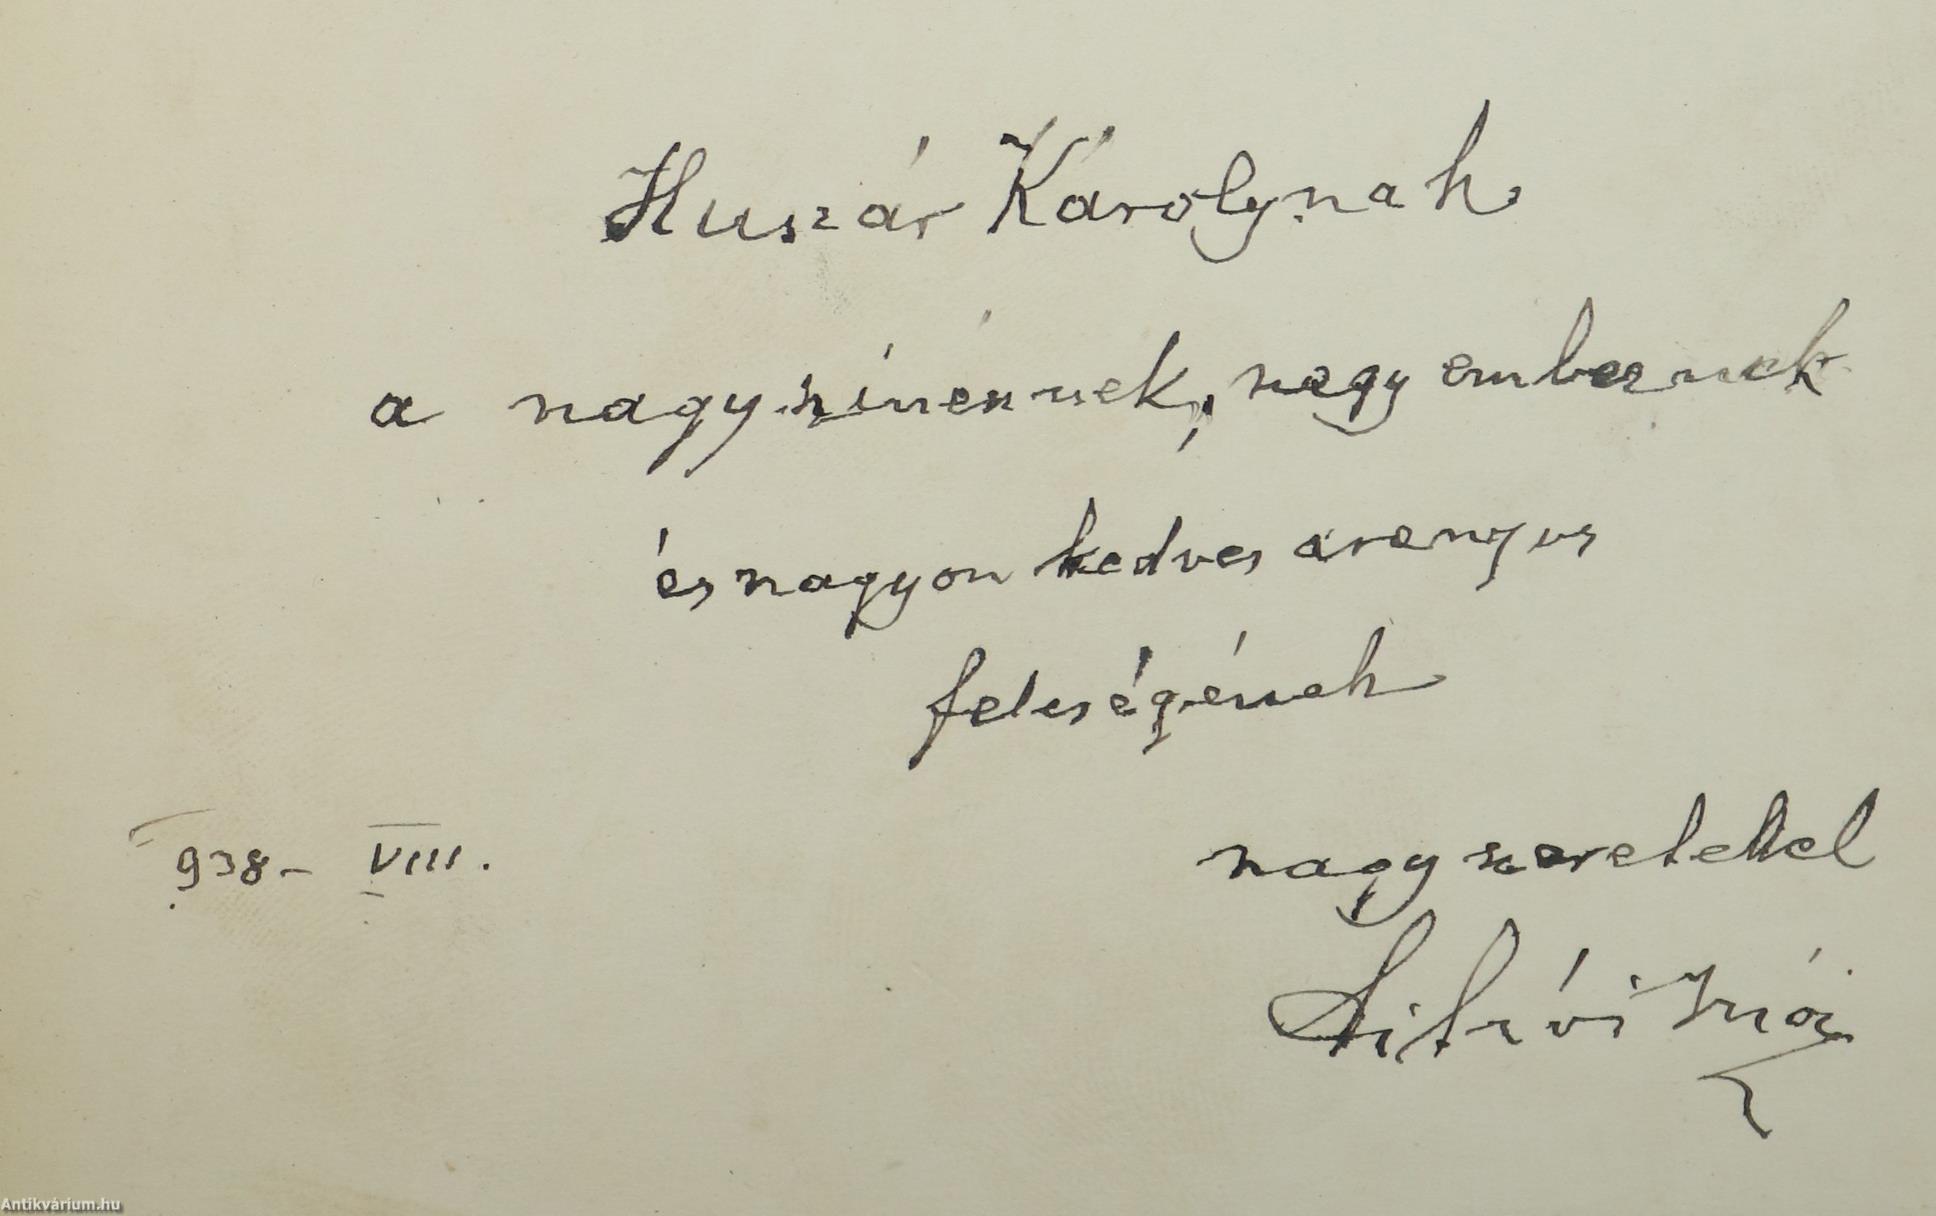 Huszár Károlynak
a nagy színésznek, nagy embernek
és nagyon kedves aranyos
feleségének
938 - VIII.
nagy szeretettel
Antikvárium.hu